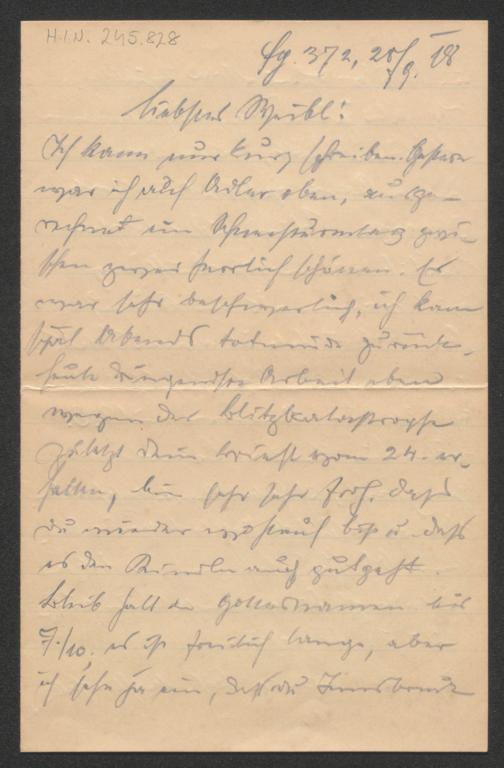 H.I.N. 245.828
fp. 372, 28/9. 18
Liebstes Weibl!
Ich kann nur kurz schreiben. Gestern
war ich auf Adler oben, ausge-
rechnet ein Schneesturmtag zwi-
schen zwei herrlich schönen. Es
war sehr beschwerlich, ich kam
spät Abends totmüde zurück.
Heute dringendste Arbeit eben
wegen der Blitzkatastrophe
zuletzt Dein Brief vom 24. er-
halten, bin sehr sehr froh, dass
du wieder wohlauf bist u. dass
es den Kindln auch gutgeht.
Bleib halt in Gottesnamen bis
7./10, es ist freilich lange, aber
ich sehe ja ein, dass du Innsbruck